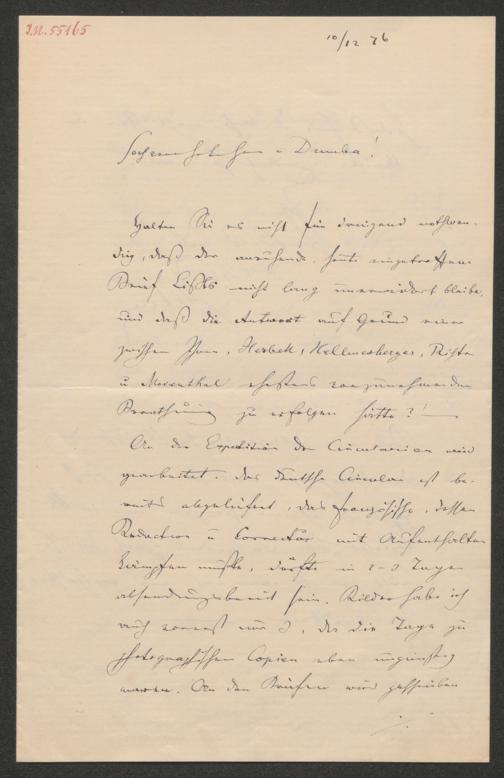 I.N. 55165
10/12 76
Hochverehrter Herr v Dumba!
Halten Sie es nicht für dringend nothwen-
dig, daß der anruhende, heute eingetroffene
Brief Liszts nicht lang unerwidert bleibe,
und daß die Antwort auf Grund einer
zwischen Ihnen, Herbeck, Hellmesberger,
u Mosenthal ehestens vorzunehmenden
Berathung zu erfolgen hätte?! —
An der Expedition der Circularien wird
gearbeitet. Das deutsche Circular ist be-
reits abgeliefert, das französische, dessen
Redaction u Correctur mit Aufenthalten
kämpfen mußte, dürfte in 2-3 Tagen
absendungsbereit sein. Bilder habe ich
auch vorerst nur 3, da die Tage zu
photographischen Copien eben ungünstig
waren. An den Briefen wird geschrieben
./.